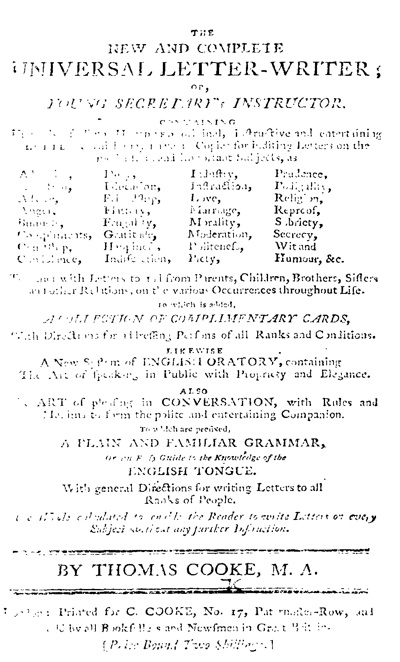 THE
NEW AND COMPLETE
UNIVERSAL LETTER-WRITER;
OR,
YOUNG SECRETARY's INSTRUCTOR.
CONTAINING
and entertaining
Copies for inditing Letters on the
Subjects, as
Duty, Industry, Prudence,
Education, Instruction, Prodigality,
Friendship, Love, Religion,
Anger, Flattery, Marriage, Reproof,
Business, Frugality, Morality, Sobriety,
Compliments, Gratitude, Moderation, Secrecy,
Courtship, Politeness, Wit and
Confidence, Indiscretion, Piety, Humour, &c.
with Letters to and from Parents, Children, Brothers, Sisters
and other Relations, on the various Occurrences throughout Life.
To which is added,
A COLLECTION OF COMPLIMENTARY CARDS,
With Directions for addressing Persons of all Ranks and Conditions.
LIKEWISE
A New System of ENGLISH ORATORY, containing
The Art of Speaking in Public with Propriety and Elegance.
ALSO
ART of pleasing in CONVERSATION, with Rules and
Maxims to form the polite and entertaining Companion.
To which are prefixed,
A PLAIN AND FAMILIAR GRAMMAR,
Or an Easy Guide to the Knowledge of the
ENGLISH TONGUE.
With general Directions for writing Letters to all
Ranks of People.
The Whole calculated to enable the Reader to write Letters on every
Subject without any further Instruction.
BY THOMAS COOKE, M. A.
London: Printed for C. COOKE, No. 17, Paternoster-Row, and
sold by all Booksellers and Newsmen in Great Britain.
[Price Bound Two Shillings.]